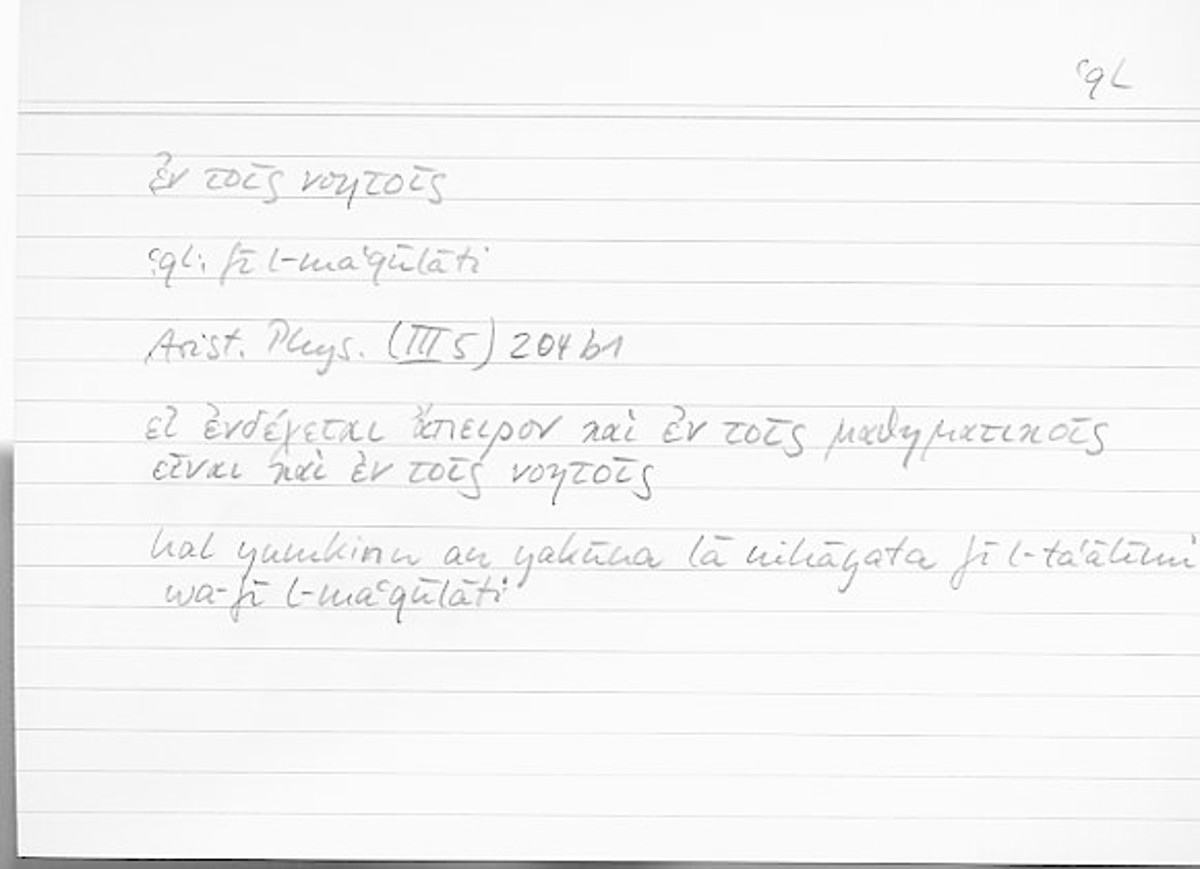 ʿql
ἐν τοῖς νοητοῖς
ʿql: fī l-maʿqūlāti
Arist. Phys. (III 5) 204 b1
εἰ ἐνδέχεται ἄπειρον καὶ ἐν τοῖς μαθηματικοῖς
εἶναι καὶ ἐν τοῖς νοητοῖς
hal yumkinu an yakūna lā nihāyata fī l-taʿālīmi
wa-fī l-maʿqūlāti